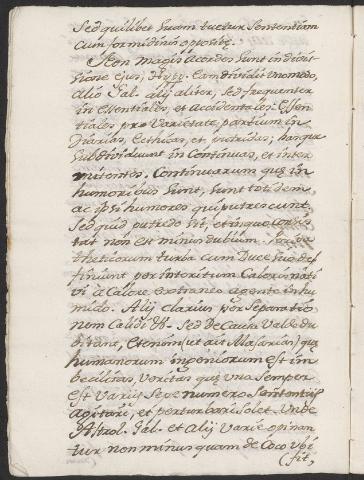 Sed quilibet suam tuetur sententiam
cum formidine opposite.
Non magis acordes sunt in divis-
sione ejus, Hypy. eam dividit uno modo,
alio Gal. alij aliter, sed frequenter
in essentiales, et accidentales: essen-
tiales pro varietate partium in
Diarias, Ecthicas, et putridas; hasque
subdividunt in continuas, et inter
mitentes. Continuarum quæ in
humoribus sunt, sunt tot idem
ac ipsi humores qui putrescunt.
Sed quid putredo sit, et in quo consis
tat non est minus dubium.
theticorum turba cum Duce suo def
finiunt per interitum caloris nati
vi à calore extraneo agente in hu
mido. Alij clarius per separatio
nem calidi &. Sed de causa valde du
bitant, etenim (ut ait Masarias) quæ
humanorum ingeniorum est im
becilitas, veritas quæ una semper
est varijs sepe numero sententijs
agitari, et perturbari solet. Unde
Astrol. Gal. et alij varie opinan
tur non minus quam de loco ubi
fit,